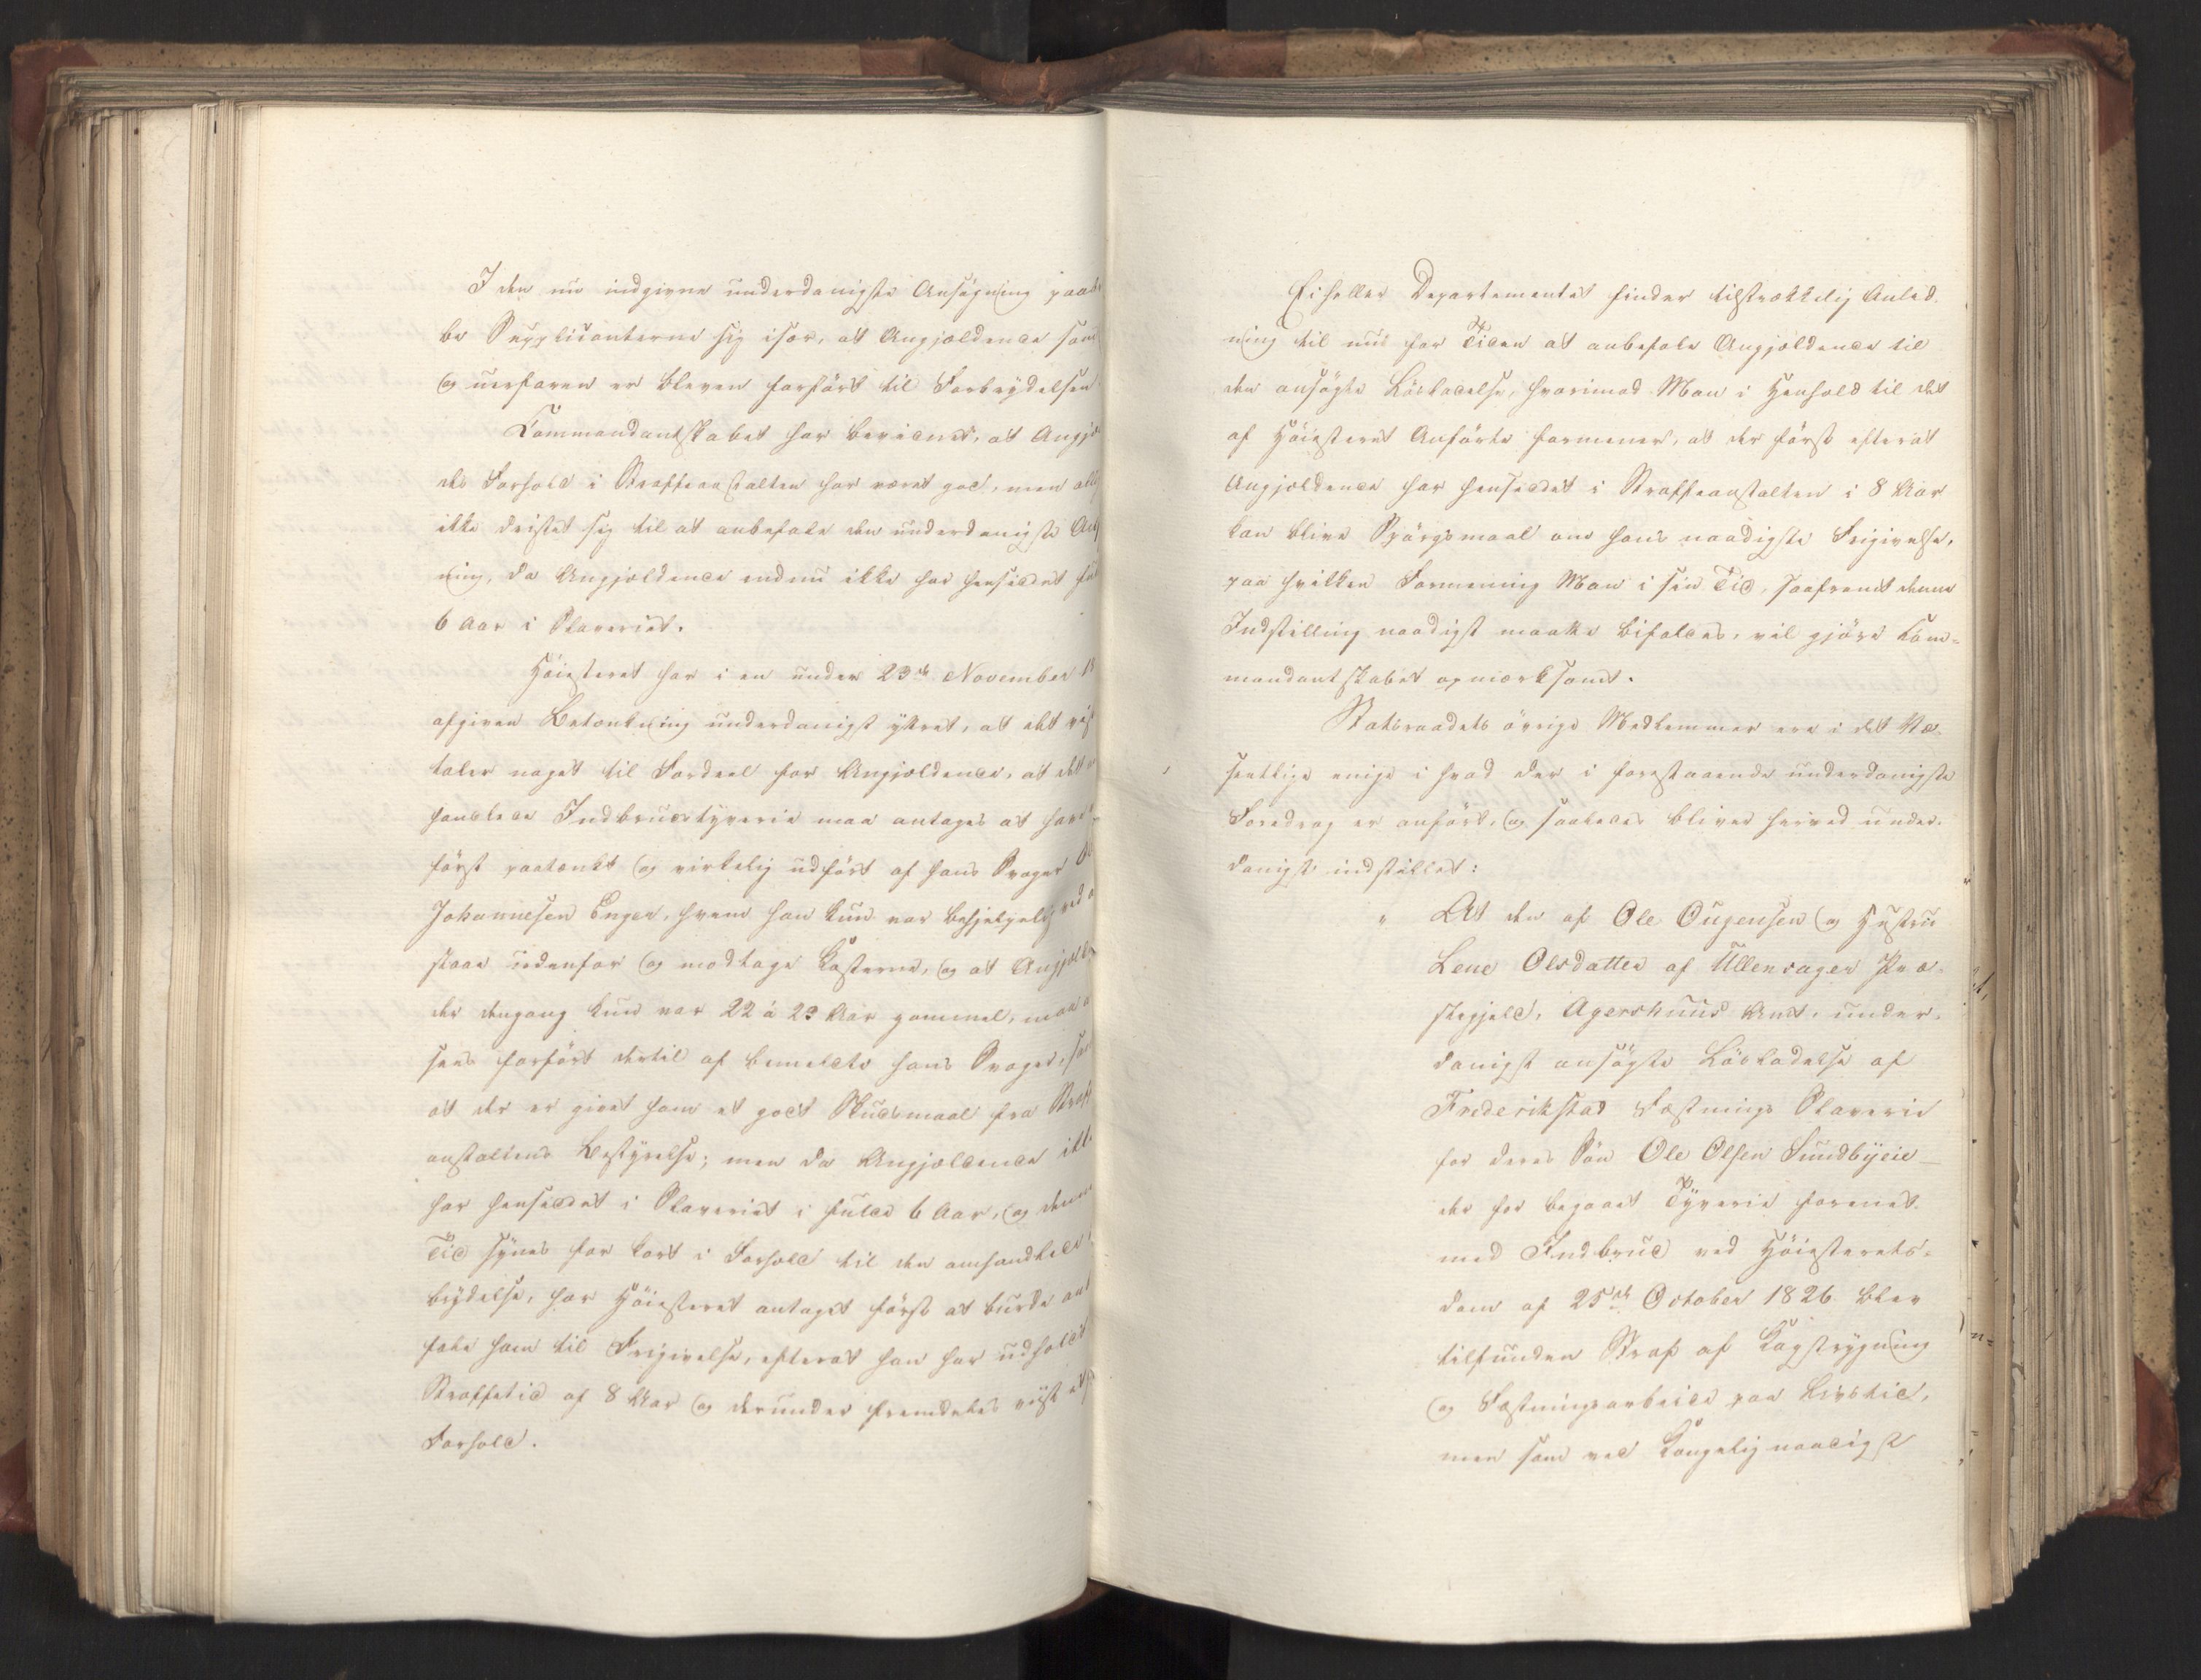 I den nu indgivne underdanigste Ansøgning paabe-
be Supplicanterne sig især, at Angjældende som
og uerfaren er bleven forført til Forbrydelsen.
Commandantskabet har bevidnet, at Angjæ
des Forhold i Straffeanstalten har været god, men
ikke dristet sig til at anbefale den underdanigste
ning, da Angjældende endnu ikke har hensiddet
6 Aar i Slaveriet.
Høiesteret har i en under 23de November 18
afgiven Betænkning underdanigst yttret, at det
taler noget til Fordeel for Angjældende, at det
handlede Indbrudstyverie maa antages at have
først paatænkt og virkelig udført af hans Svoger
Johannesen Enger, hvem han kun var behjelpelig ved
staae udenfor og modtage Kosterne, og at Angjæld
der dengang kun var 22 á 23 Aar gammel, maa
sees forført dertil af bemeldte hans Svoger,
at der er givet ham et godt Skudsmaal fra Straf
anstaltens Bestyrelse; men da Angjældende ikke
har hensiddet i Slaveriet i fulde 6 Aar, og denne
Tid synes for kort i Forhold til den omhandlede
brydelse, har Høiesteret antaget først at burde an
fale ham til Frigivelse, efterat han har udholdt
Straffetid af 8 Aar og derunder fremdeles viist
Forhold.
Ei heller Departementet finder tilstrækkelig Anled-
ning til nu for Tiden at anbefale Angjældende til
den ansøgte Løsladelse, hvorimod Man i Henhold til det
af Høiesteret Anførte formener, at der først efterat
Angjældende har hensiddet i Straffeanstalten i 8 Aar
kan blive Spørgsmaal om hans naadigste Frigivelse,
paa hvilken Formening Man i sin Tid, saafremt denne
Indstilling naadigst maatte bifaldes, vil gjøre Kom-
mandantskabet opmærksomt.
Statsraadets øvrige Medlemmer ere i det Væ-
sentlige enige i hvad der i forestaaende underdanigste
Foredrag er anført, og saaledes bliver herved under-
danigst indstillet:
" At den af Ole Ougensen og Hustru
Lene Olsdatter af Ullensager Præ-
stegjeld, Agershuus Amt, under-
danigst ansøgte Løsladelse af
Frederikstad Fæstnings Slaverie
for deres Søn Ole Olsen Sundbyeie
der for begaaet Tyverie forenet
med Indbrud ved Høiesterets-
dom af 25de October 1826 blev
tilfunden Straf af Kagstrygning
og Fæstningsarbeide paa Livstid,
men som ved Kongelig naadigst